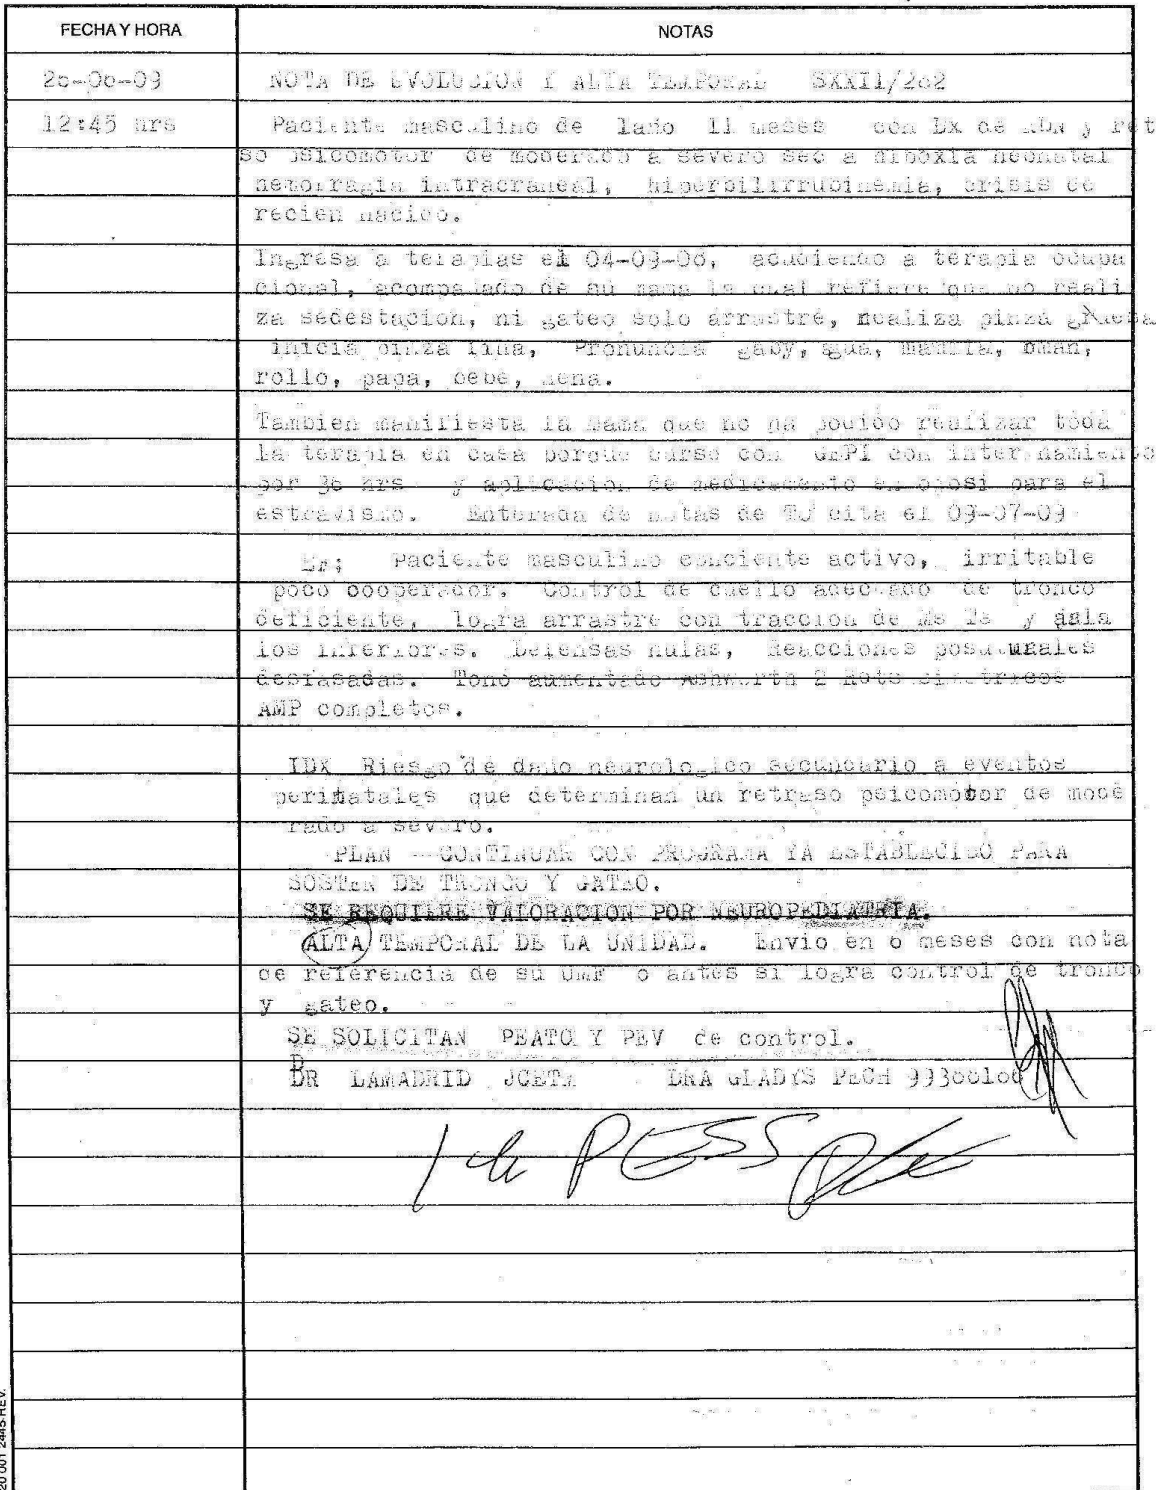 FECHA Y HORA
NOTAS
NOTA DE EVOLUCION Y ALTA TEMPORAL
12:45 hrs
Paciente masculino de 1año 11 meses con Dx de y ret
so psicomotor de moderado a severo sec a hipoxia neonatal
hemorragia intracraneal, hiperbilirrubinemia, crisis de
recien nacido.
Ingresa a terapias el 04-09-08, acudiendo a terapia ocupa
cional, acompañado de su mama la cual refiere que no reali
za sedestacion, ni gateo solo arrastre, realiza pinza gruesa
inicia pinza fina, Pronuncia gaby, agua, mamila,
rollo, papa, bebe, nena.
Tambien manifiesta la mama que no ha podido realizar toda
la terapia en casa porque curso con GEPI con internamiento
por 36 hrs y aplicacion de medicamento para el
estravismo. Enterada de notas de TO cita el 09-07-09
EF; Paciente masculino conciente activo, irritable
poco cooperador. Control de cuello adecuado de tronco
deficiente, logra arrastre con traccion de Ms Ts y jala
los inferiores. Defensas nulas, Reacciones posturales
desfasadas. Tono aumentado Ashworth 2 Rots simetricos
AMP completos.
IDX Riesgo de daño neurologico secundario a eventos
perinatales que determinan un retraso psicomotor de mode
rado a severo.
PLAN -CONTINUAR CON PROGRAMA YA ESTABLECIDO PARA
SOSTEN DE TRONCO Y GATEO.
SE REQUIERE VALORACION POR NEUROPEDIATRIA.
ALTA TEMPORAL DE LA UNIDAD. Envio en 6 meses con nota
de referencia de su UMF o antes si logra control de tronco
y gateo.
SE SOLICITAN PEATC Y PEV de control.
DR LAMADRID DRA GLADYS PECH
PESS